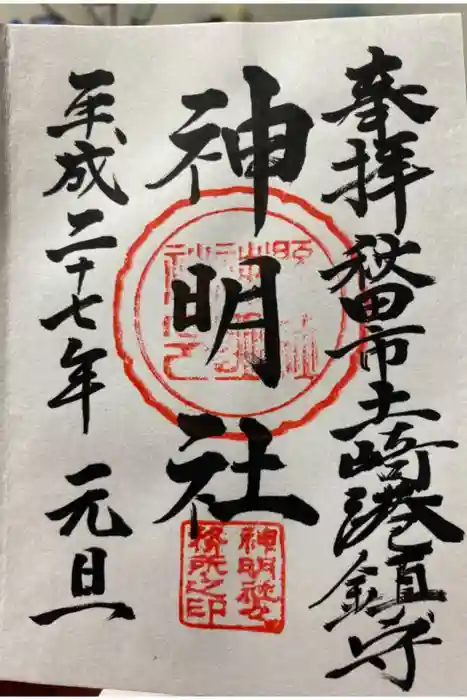 奉拝 秋田市土崎港鎮守
神明社
平成二十七年 元旦
神明社
務所之印